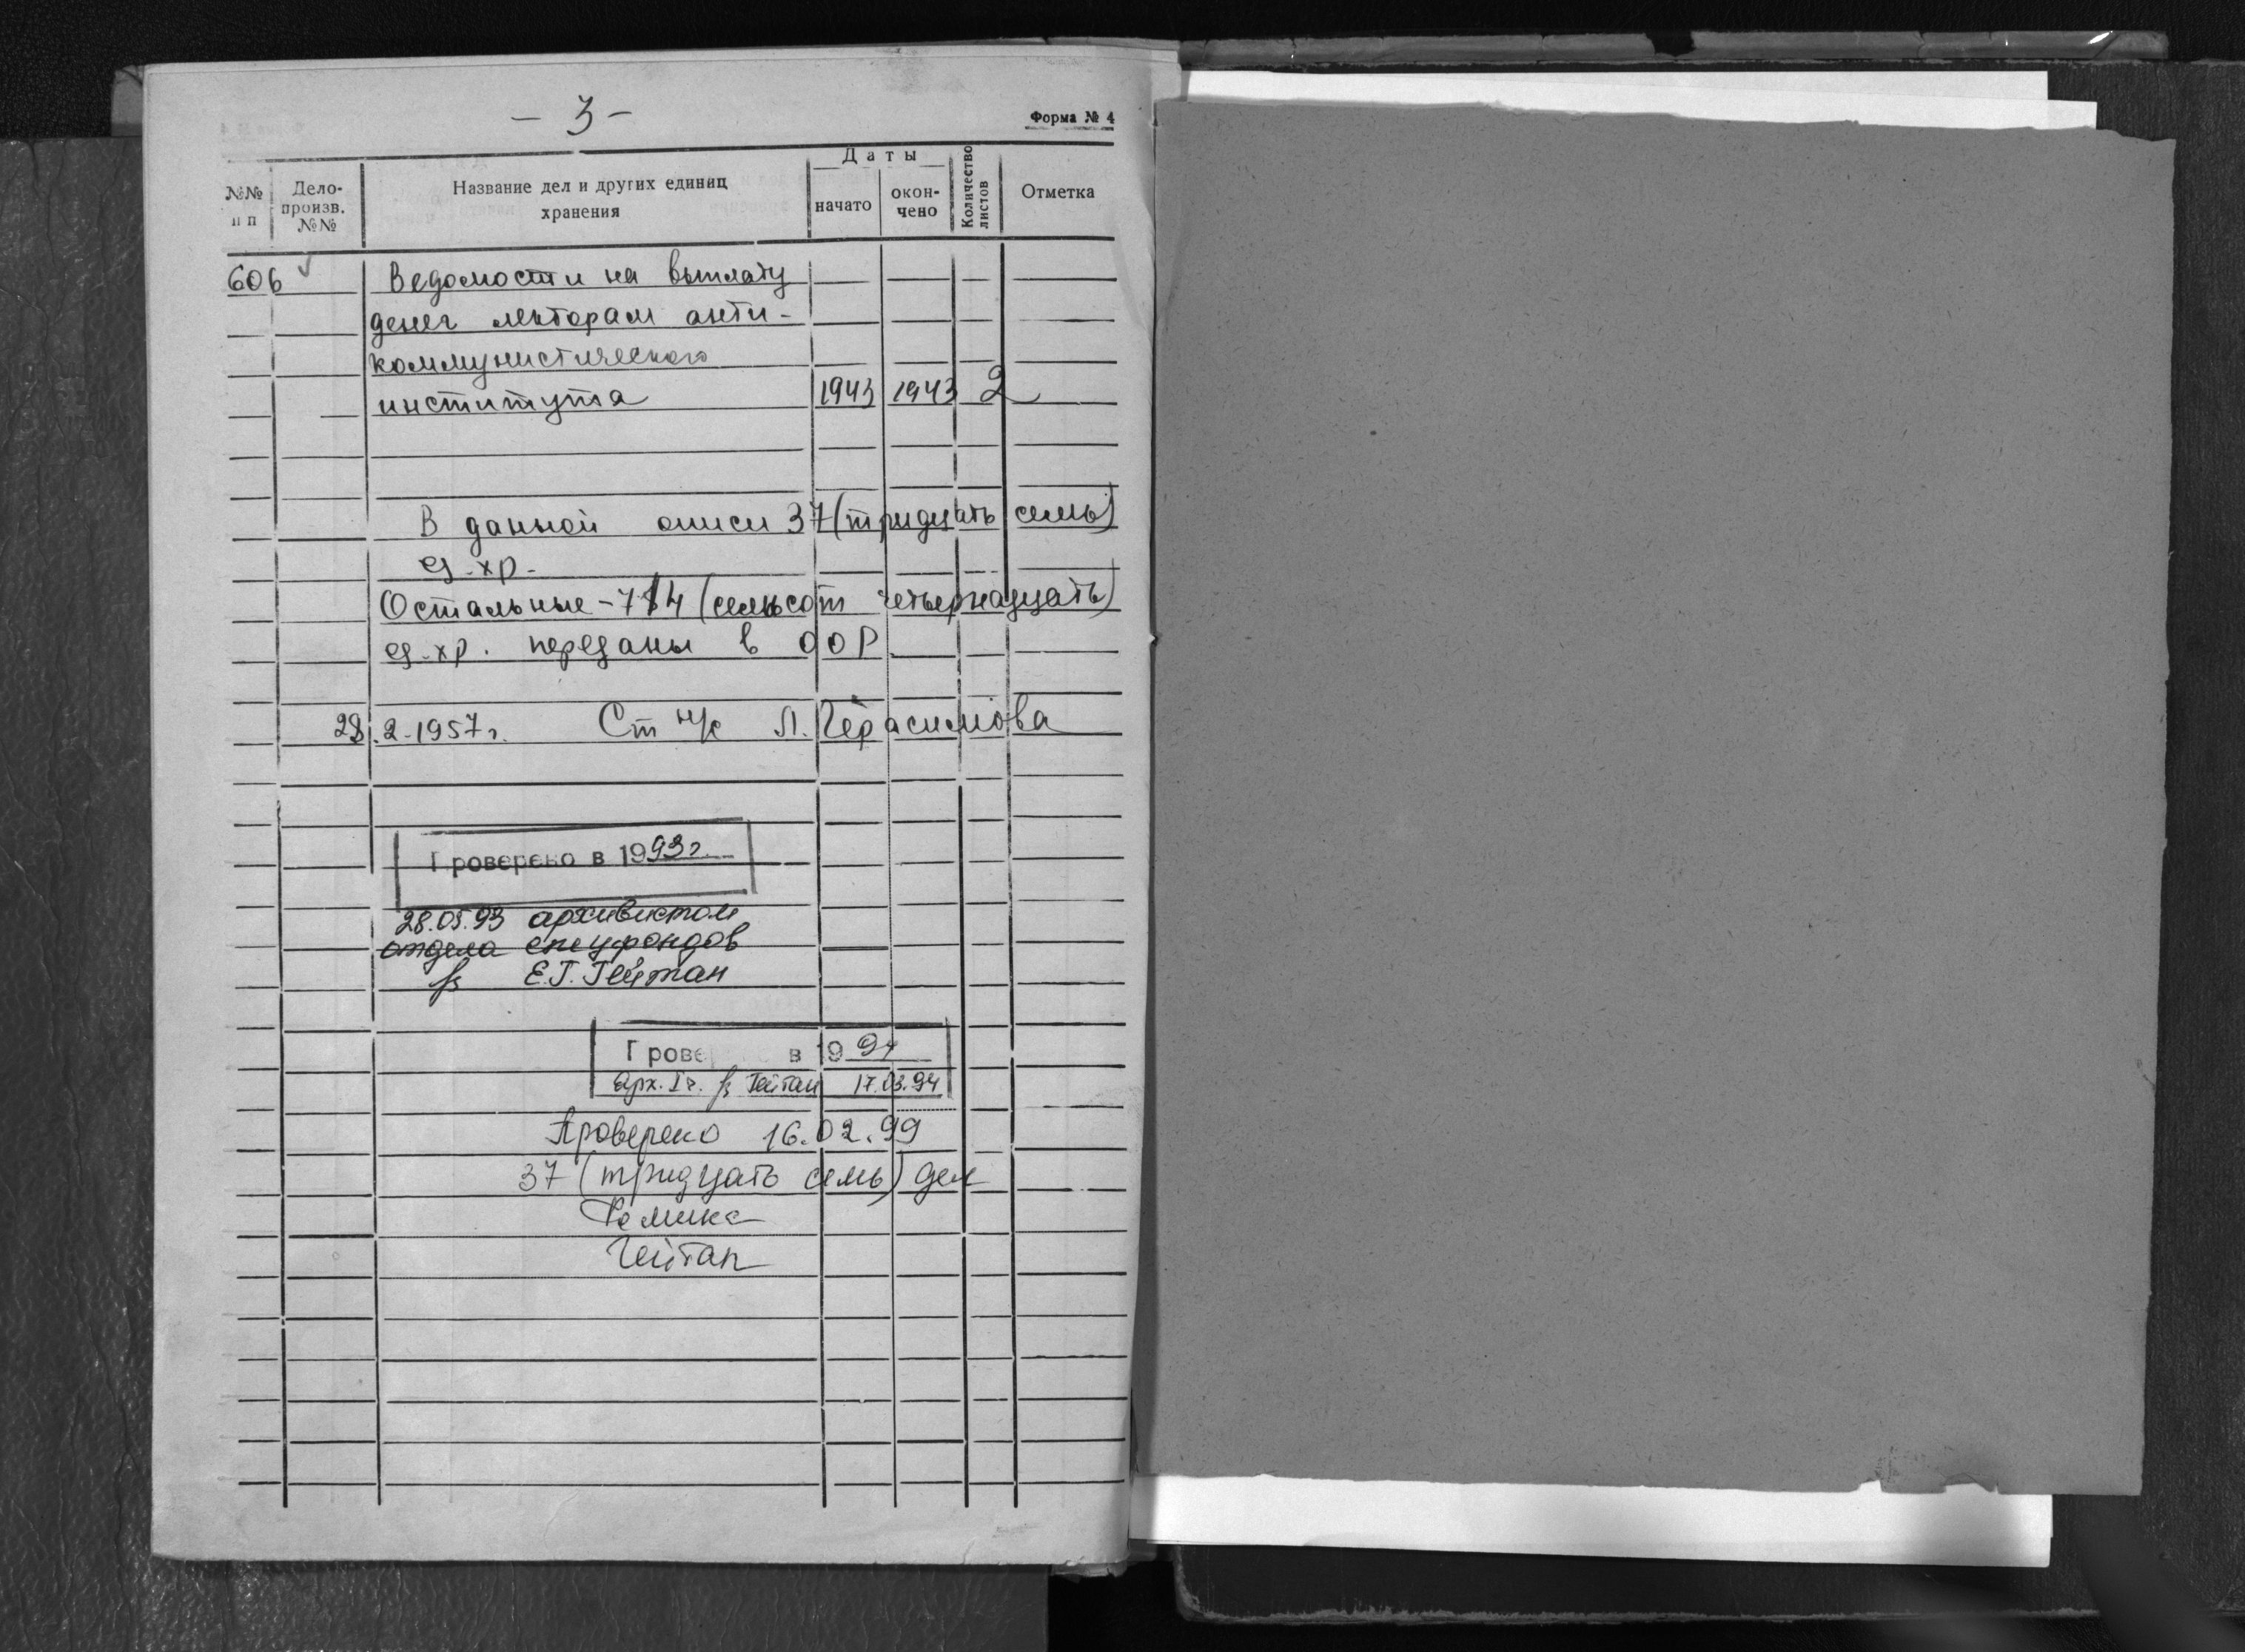 - 3 -
Форма № 4
№№ п п
Дело-произв. №№
Название дел и других единиц хранения
Даты
начато
окон-чено
Количество листов
Отметка
606 Ведомости на выплату
денег лекторам анти-
коммунистического
института 1943 1943 2
В данной описи 37 (тридцать семь)
ед. хр.
Остальные - 714 (семьсот четырнадцать)
ед. хр. переданы в ООР
28.2.1957 г. Ст н/с Л. Герасимова
Проверено в 1993 г.
28.05.93 архивистом
отдела спецфондов
Е.Г. Гейтан
Проверено в 1994
Арх. I к. Гейтан 17.03.94
Проверено 16.02.99
37 (тридцать семь) дел
Гейтан